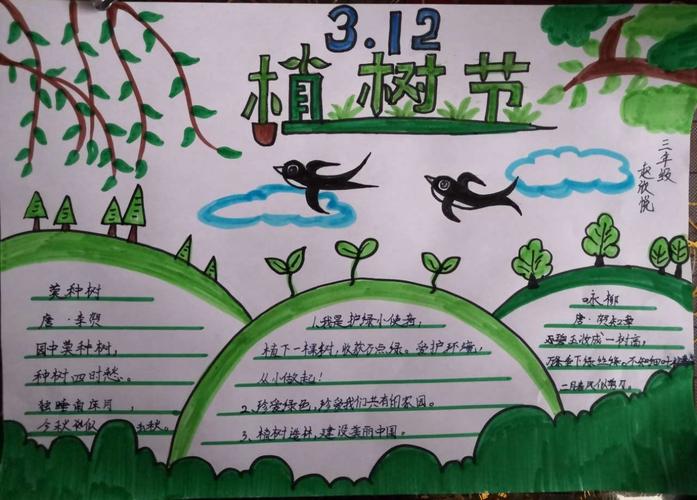 3.12
植树节
三年级
赵欣悦
莫种树
唐·李贺
园中莫种树,
种树四时愁。
独睡南床月,
今秋似去秋。
1、我是护绿小使者,
植下一棵树,收获万点绿。爱护环境,
从小做起!
2、珍爱绿色,珍爱我们共有的家园。
3、植树造林,建设美丽中国。
咏柳
唐·贺知章
碧玉妆成一树高,
万条垂下绿丝绦。不知细叶
二月春风似